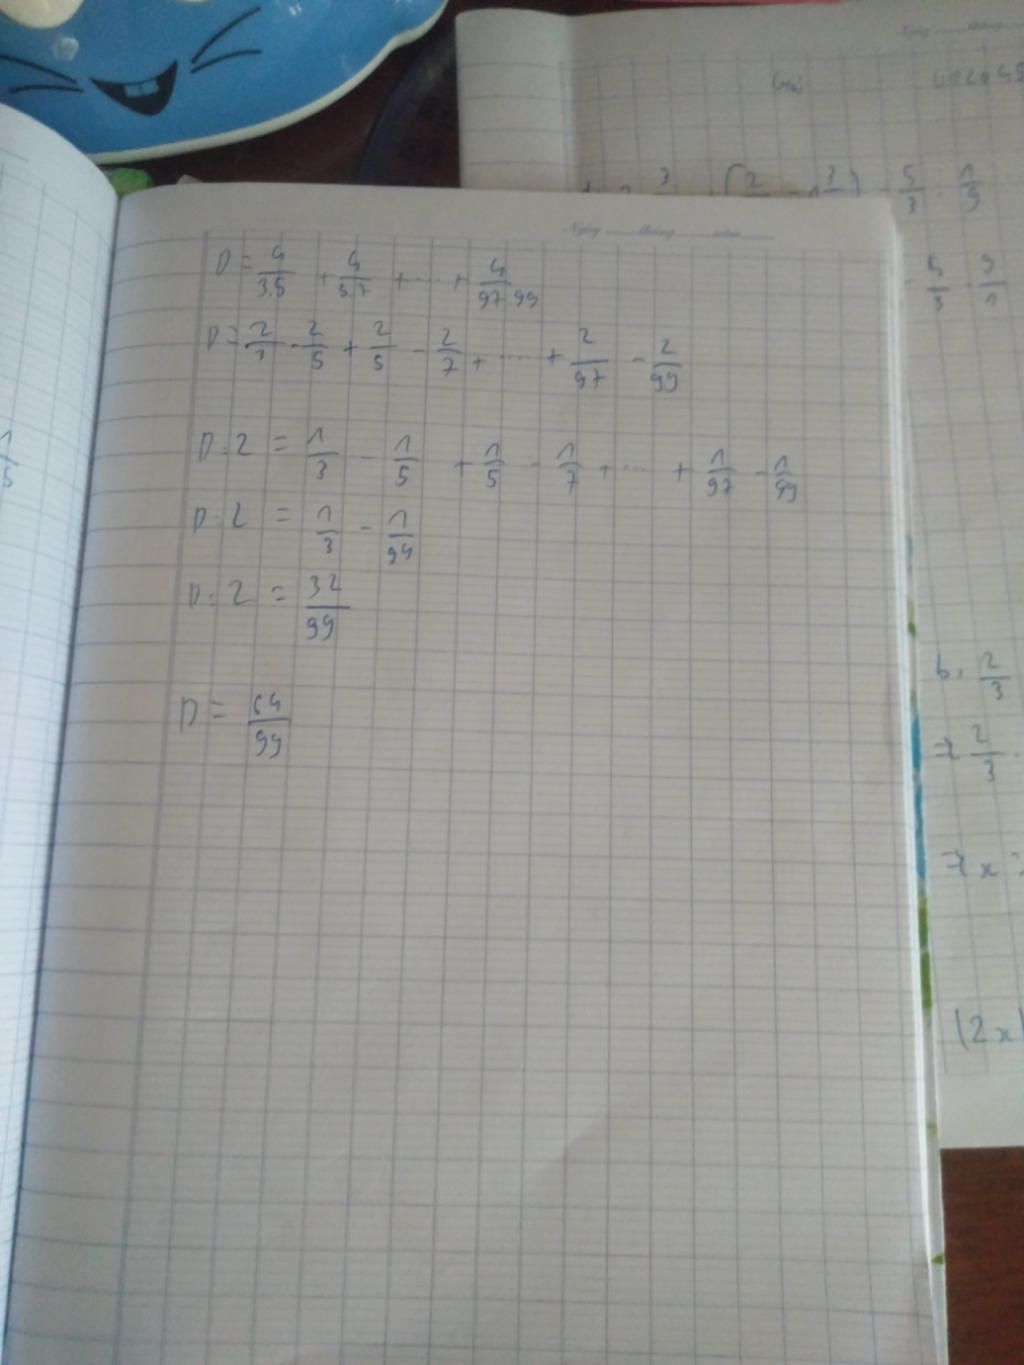 Ngày Tháng năm
D = 4/3.5 + 4/5.7 + ... + 4/97.99
D = 2/3 - 2/5 + 2/5 - 2/7 + ... + 2/97 - 2/99
D : 2 = 1/3 - 1/5 + 1/5 - 1/7 + ... + 1/97 - 1/99
D : 2 = 1/3 - 1/99
D : 2 = 32/99
D = 64/99
5/3 . 1/9
5/3 . 9/1
1/5
b, 2/3
=> 2/3 .
=> x =
|2x|